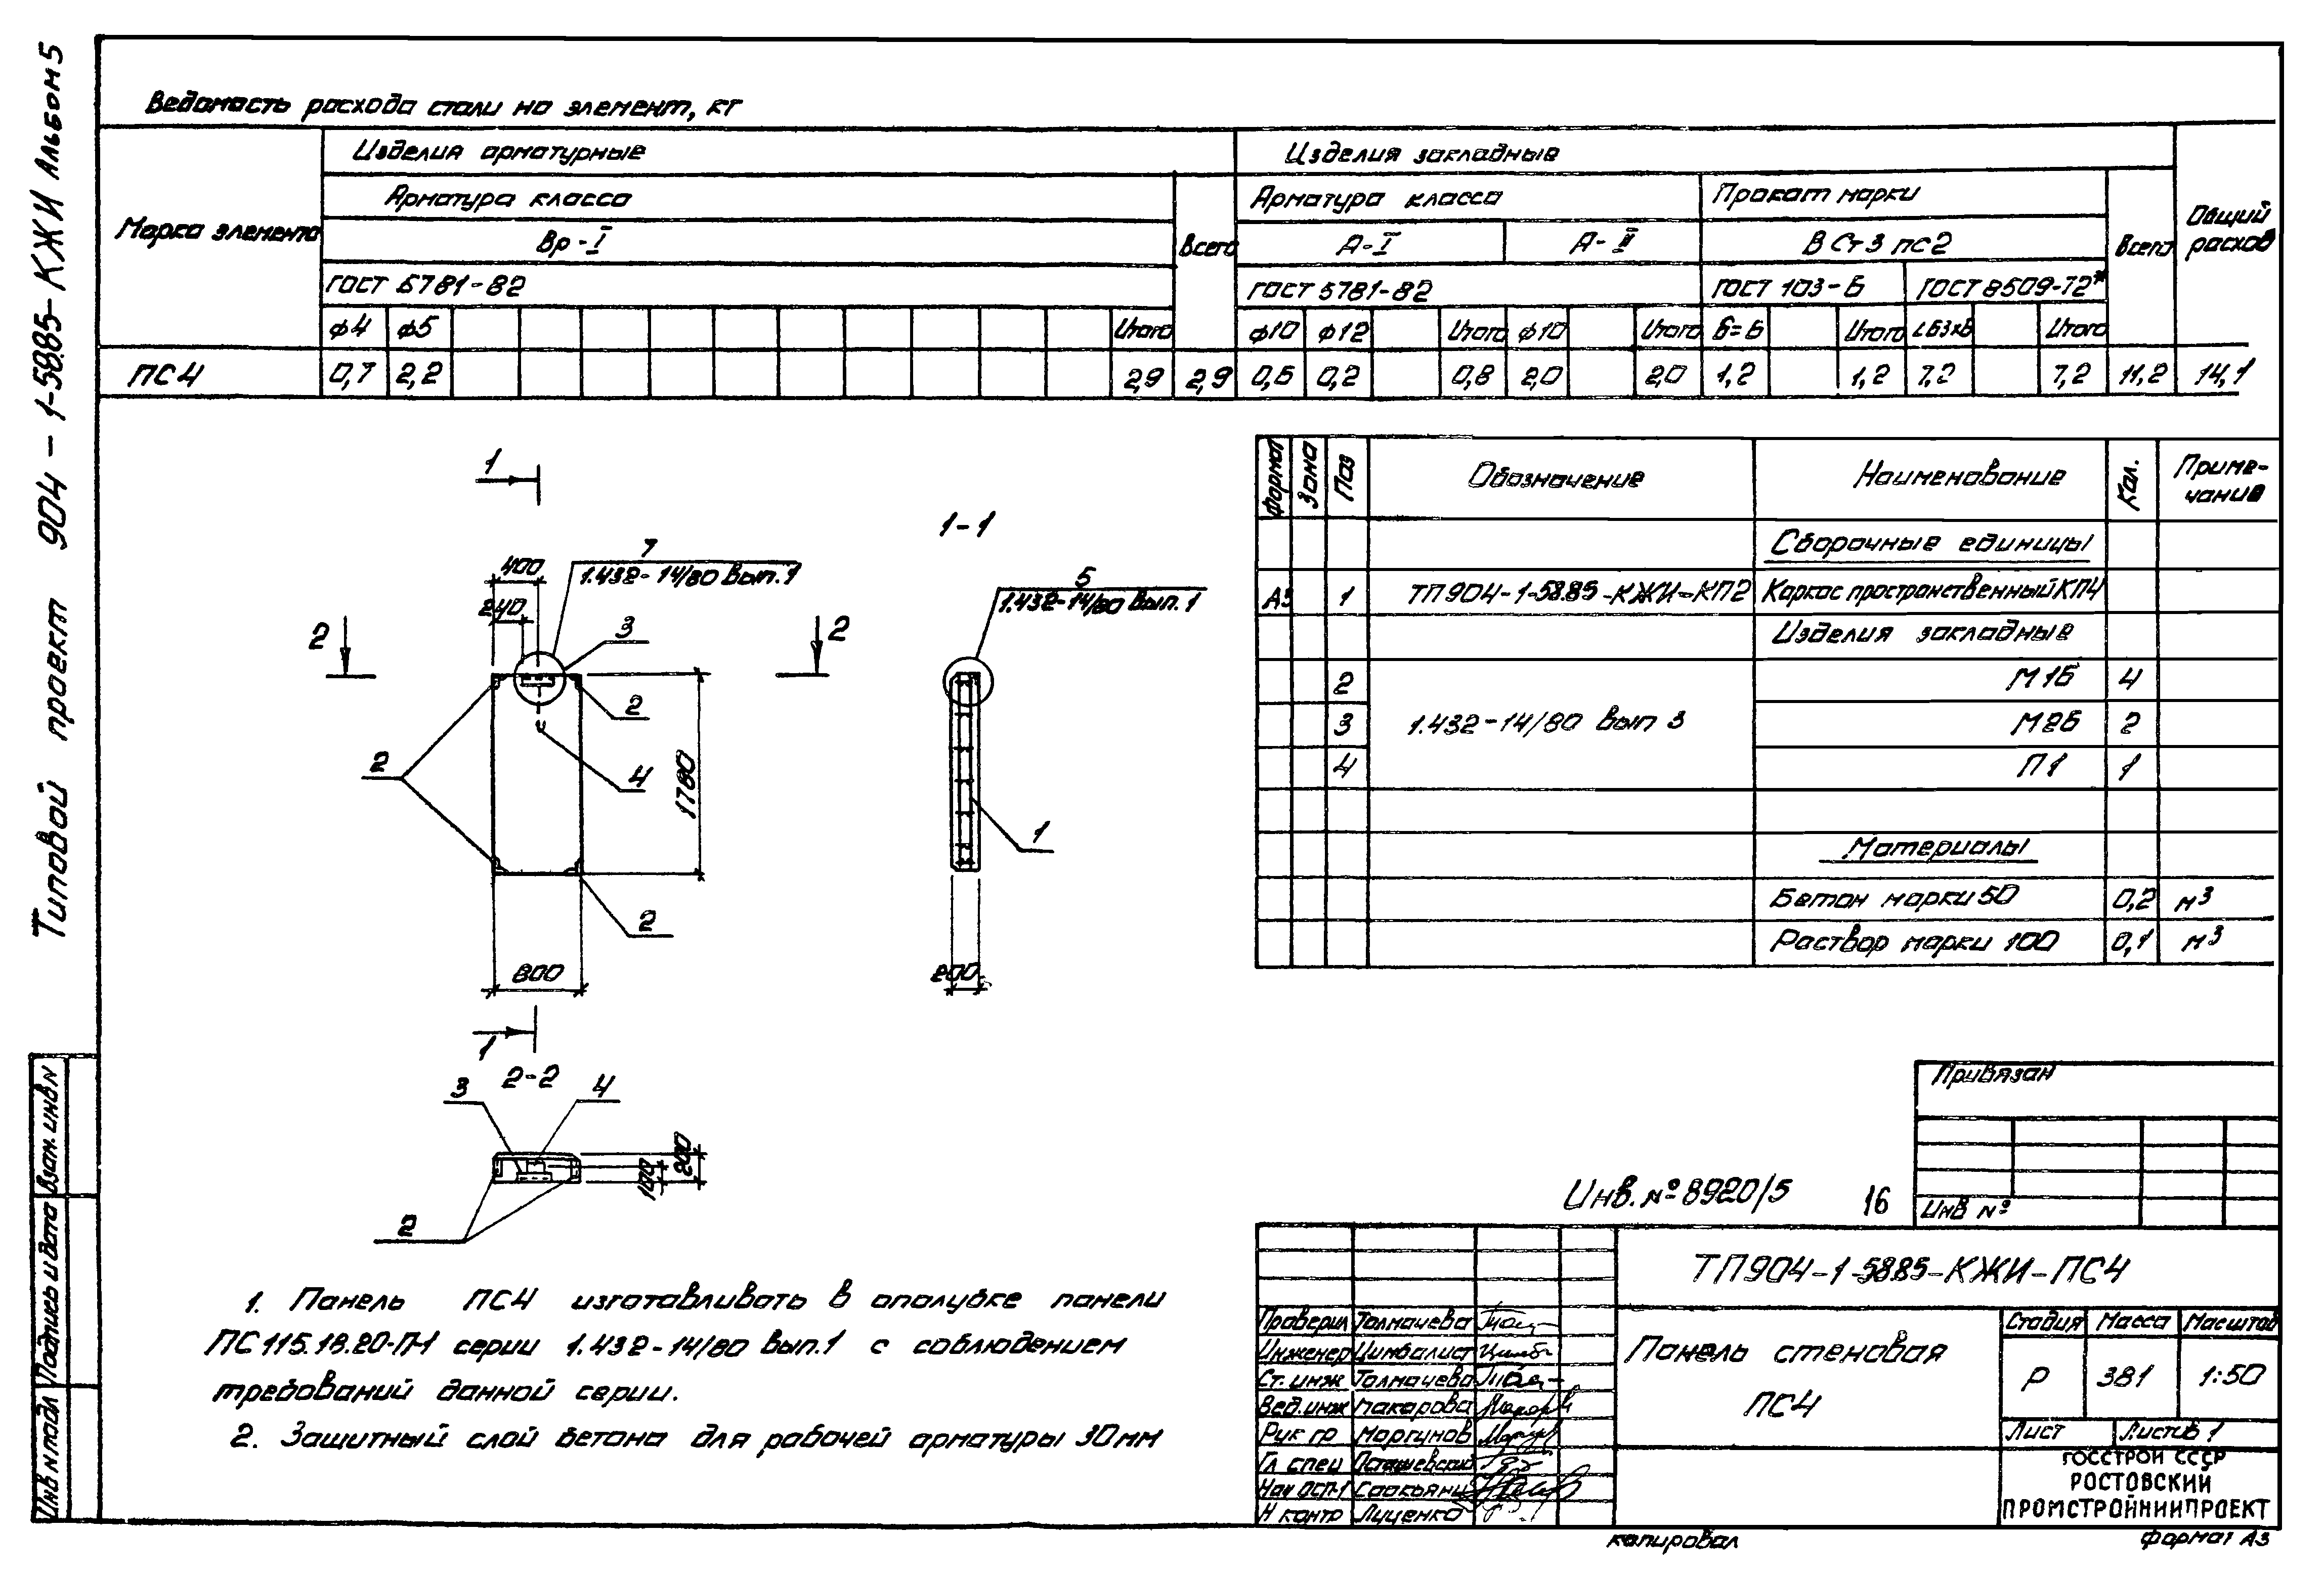 Типовой проект 904-1-58.85-КЖИ Альбом 5
Ведомость расхода стали на элемент, кг
Марка элемента
Изделия арматурные
Изделия закладные
Общий расход
Арматура класса
Всего
Арматура класса
Прокат марки
Всего
Вр-I
А-I
А-II
ВСт3пс2
ГОСТ 6781-82
ГОСТ 5781-82
ГОСТ 103-Б
ГОСТ 8509-72*
ф4 ф5 Итого ф10 ф12 Итого ф10 Итого б=6 Итого Итого
ПС4 0,7 2,2 2,9 2,9 0,6 0,2 0,8 2,0 2,0 1,2 1,2 7,2 7,2 11,2 14,1
Формат Зона Поз Обозначение Наименование Кол. Приме-
чание
Сборочные единицы
А3 1 ТП904-1-58.85-КЖИ-КП2 Каркас пространственный КП4
Изделия закладные
2 М1Б 4
3 1.432-14/80 вып 3 М2Б 2
4 П1 1
Материалы
Бетон марки 50 0,2 м³
Раствор марки 100 0,1 м³
1
1-1
400
7
1.432-14/80 Вып.1
5
1.432-14/80 Вып.1
240
3
2
2
2
2
4
1780
1
2
800
200
1
2-2
3
4
200
100
2
1. Панель ПС4 изготавливать в опалубке панели
ПС115.18.20-П-1 серии 1.432-14/80 Вып.1 с соблюдением
требований данной серии.
2. Защитный слой бетона для рабочей арматуры 30мм
Взам. инв N
Подпись и дата
Инв N подл
Привязан
Инв №
Инв. № 8920/5 16
ТП904-1-58.85-КЖИ-ПС4
Проверил Толмачева
Инженер Цимбалист
Ст. инж Толмачева
Вед. инж Макарова
Рук гр Моргунов
Гл спец Осташевский
Нач ОСП-1 Саакьянц
Н контр Луценко
Панель стеновая
ПС4
Стадия Масса Масштаб
Р 381 1:50
Лист Листов 1
ГОССТРОЙ СССР
РОСТОВСКИЙ
ПРОМСТРОЙНИИПРОЕКТ
копировал
формат А3